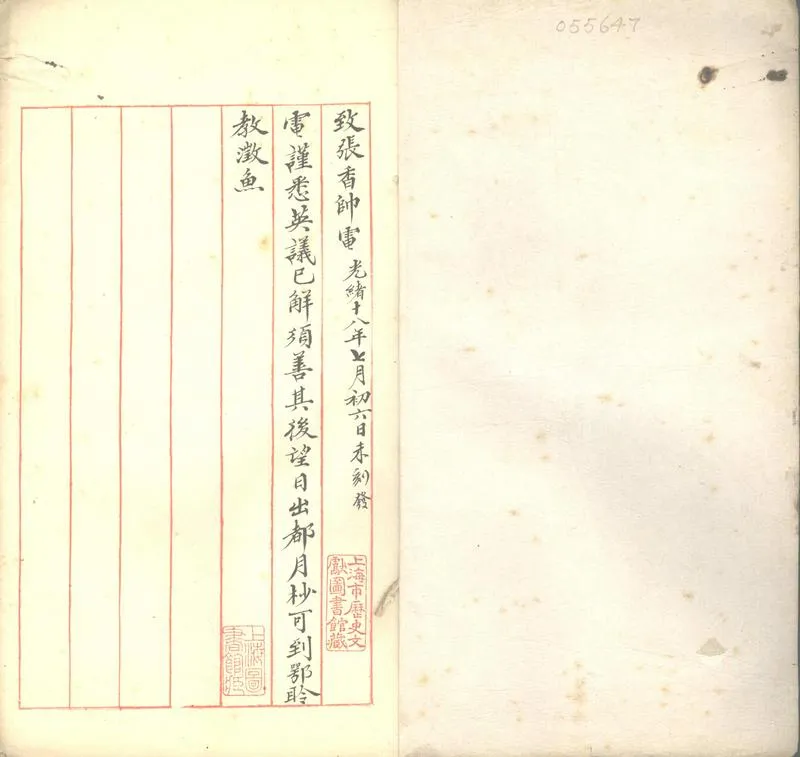 055647
致張香帥電 光緒十八年七月初六日未刻發
電謹悉英議已解須善其後望日出都月杪可到鄂聆
教瀓魚
上海市歷史文
獻圖書館藏
上海圖
書館藏